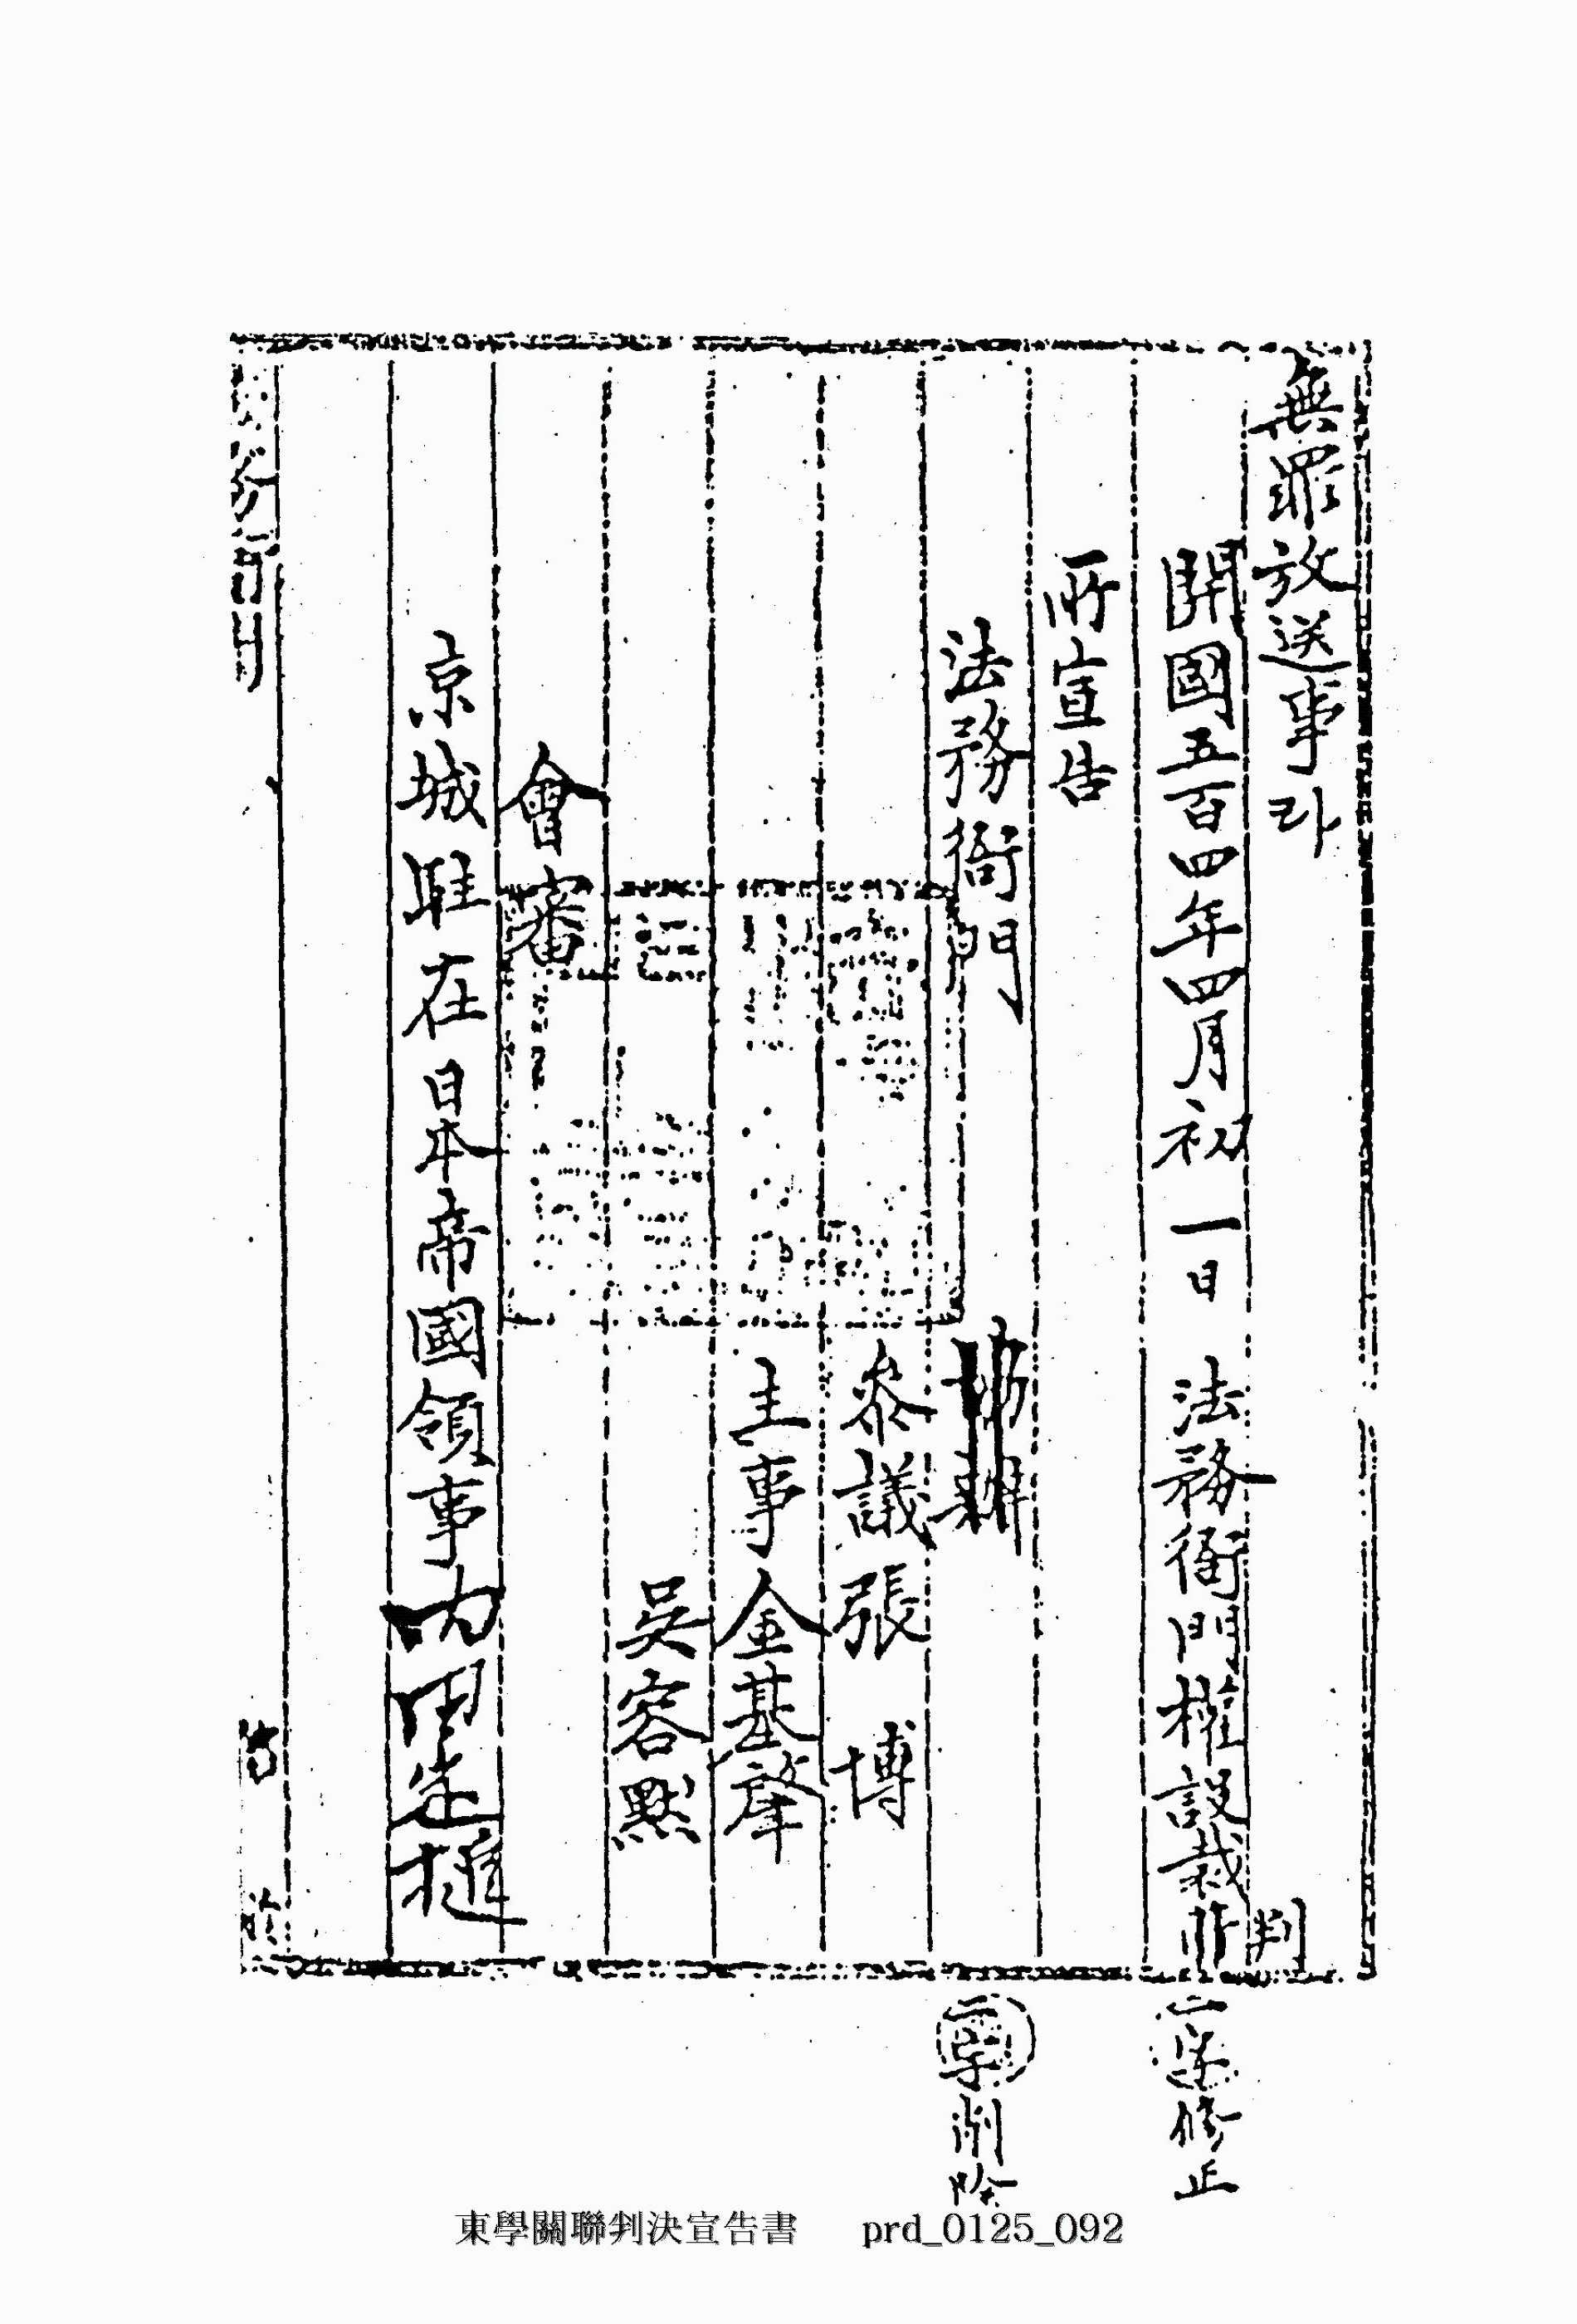 無罪放送事라
開國五百四年四月初一日 法務衙門權設裁判
所宣告
法務衙門
協辦
參議 張 博
主事 金基肇
吳容默
會審
京城駐在日本帝國領事 内田定槌
一字修正
二字削除
東學關聯判決宣告書 prd_0125_092